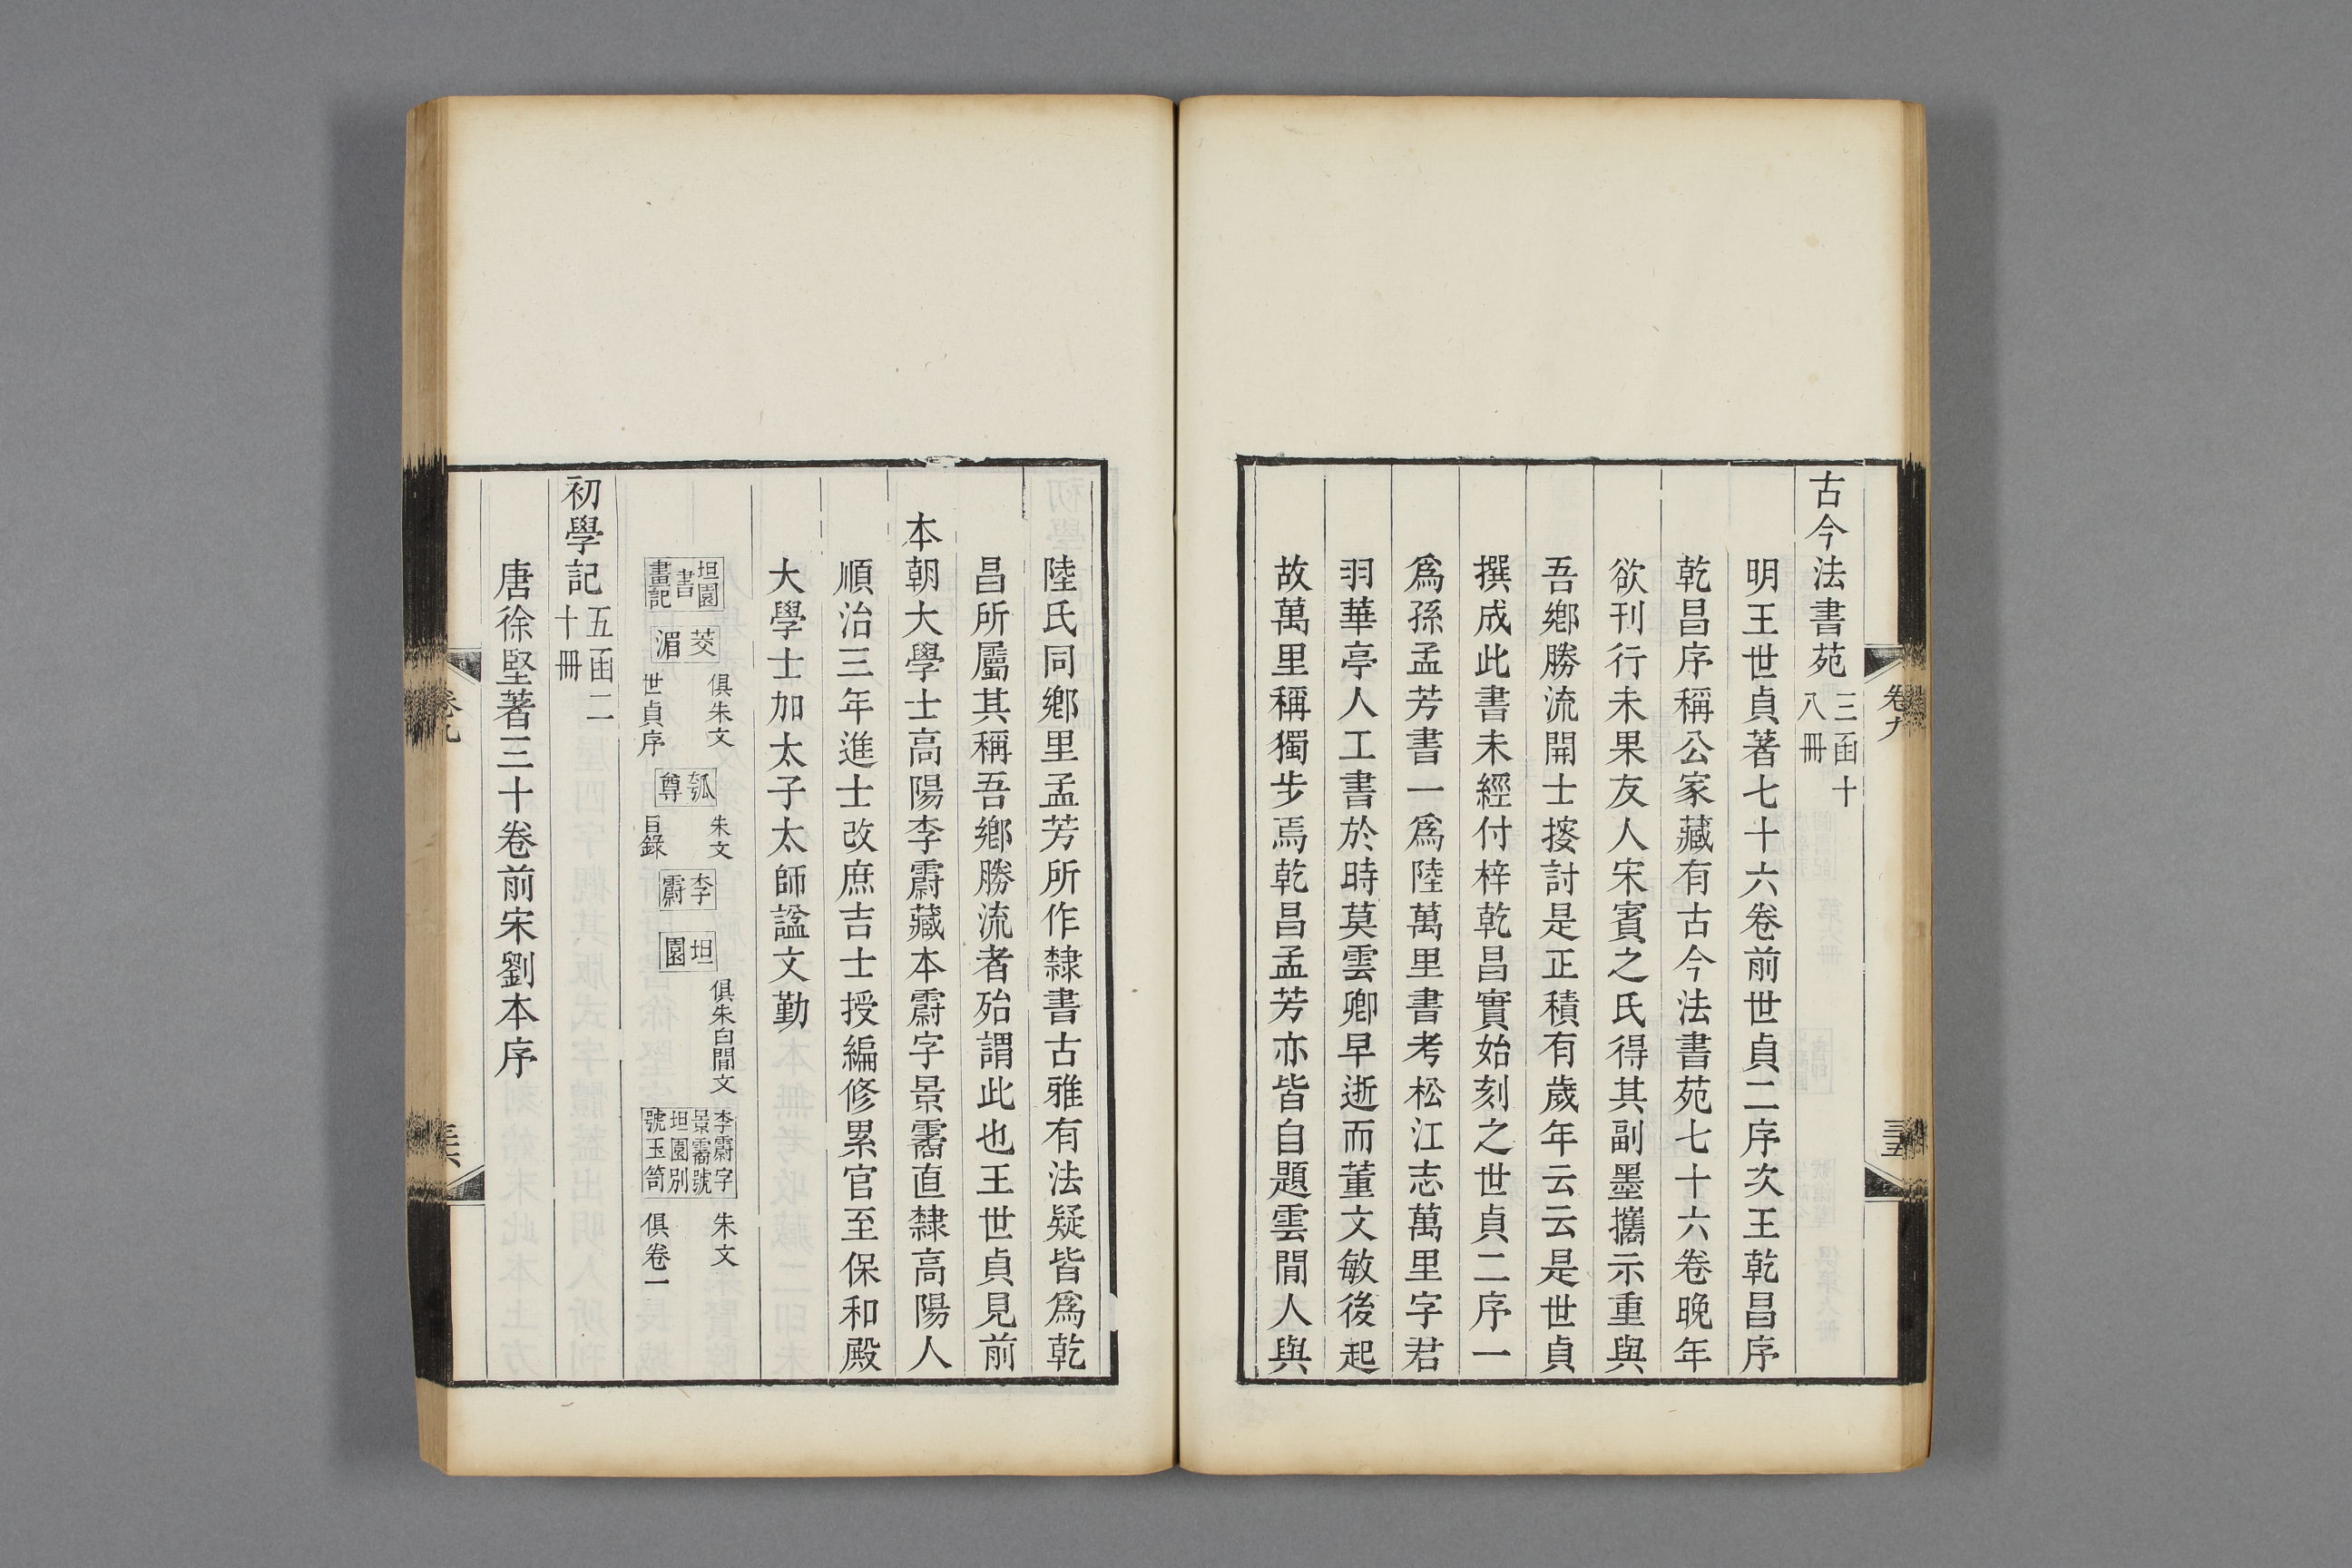 古今法書苑 三函十八冊
明王世貞著七十六卷前世貞二序次王乾昌序
乾昌序稱公家藏有古今法書苑七十六卷晚年
欲刊行未果友人宋賓之氏得其副墨攜示重與
吾鄉勝流開士挍討是正積有歲年云云是世貞
撰成此書未經付梓乾昌實始刻之世貞二序一
爲孫孟芳書一爲陸萬里書考松江志萬里字君
羽華亭人工書於時莫雲卿早逝而董文敏後起
故萬里稱獨步焉乾昌孟芳亦皆自題雲閒人與
卷九
三五
陸氏同鄉里孟芳所作隸書古雅有法疑皆爲乾
昌所屬其稱吾鄉勝流者殆謂此也王世貞見前
本朝大學士高陽李霨藏本霨字景霱直隸高陽人
順治三年進士改庶吉士授編修累官至保和殿
大學士加太子太師諡文勤
坦園書畫記 茭湄 俱朱文世貞序 瓠尊 朱文目錄 李霨 坦園 俱朱白閒文 李霨字景霱號坦園別號玉笥 朱文俱卷一
初學記 五函二十冊
唐徐堅著三十卷前宋劉本序
卷九
三六